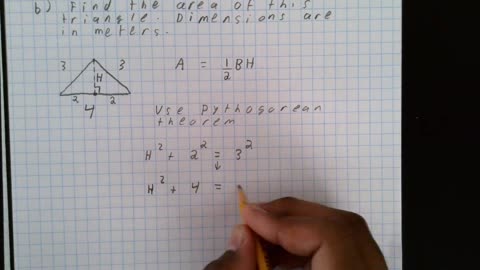 b) Find the area of this
triangle. Dimensions are
in meters.
3 3
H
2 2
4
A = 1/2 BH
Use Pythagorean
theorem
H² + 2² = 3²
H² + 4 =